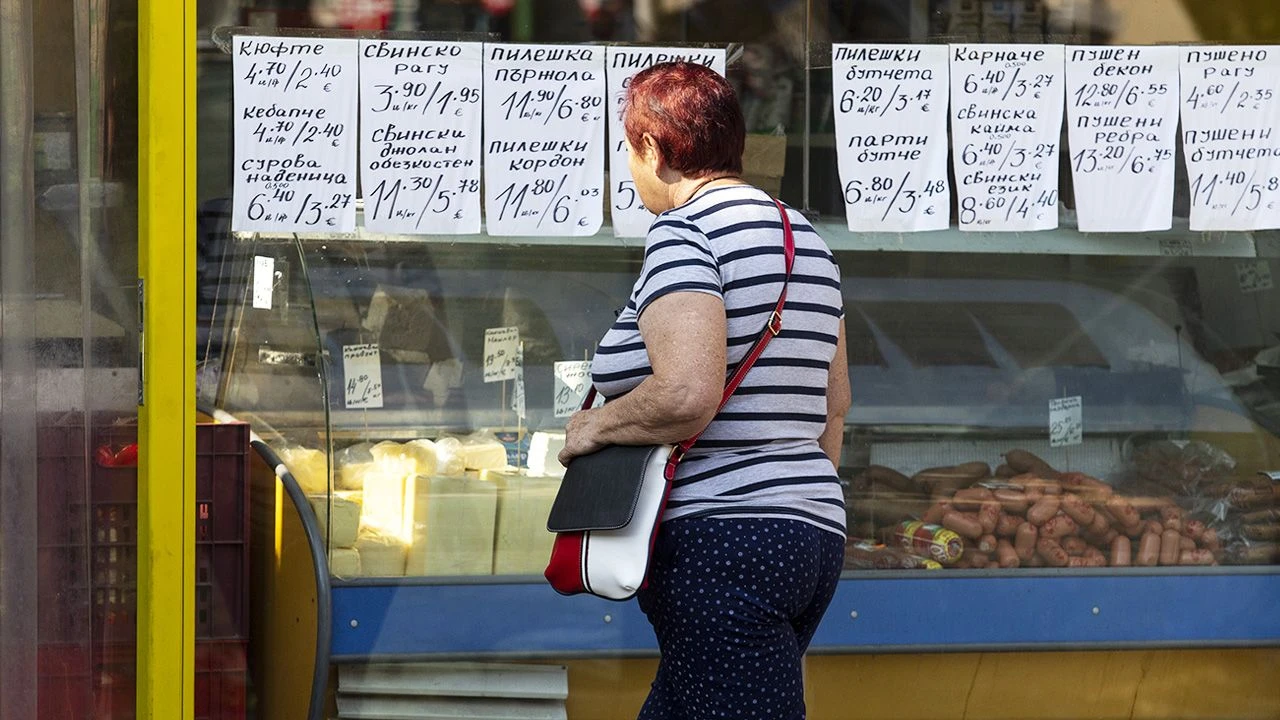 Кюфте
4.70/2.40
€
кебапче
4.70/2.40
€
сурова
наденица
0.500
6.40/3.27
€
свинско
рагу
3.90/1.95
€
свински
джолан
обезкостен
11.30/5.78
€
пилешка
пържола
11.90/6.80
€
пилешки
кордон
11.80/6.03
€
пилешки
5
пилешки
бутчета
6.20/3.17
€
парти
бутче
6.80/3.48
€
карначе
0.500
6.40/3.27
€
свинска
кайма
0.500
6.40/3.27
€
свински
език
8.60/4.40
€
пушен
бекон
12.80/6.55
€
пушени
ребра
13.20/6.75
€
пушено
рагу
4.60/2.35
€
пушени
бутчета
11.40/5.8
€